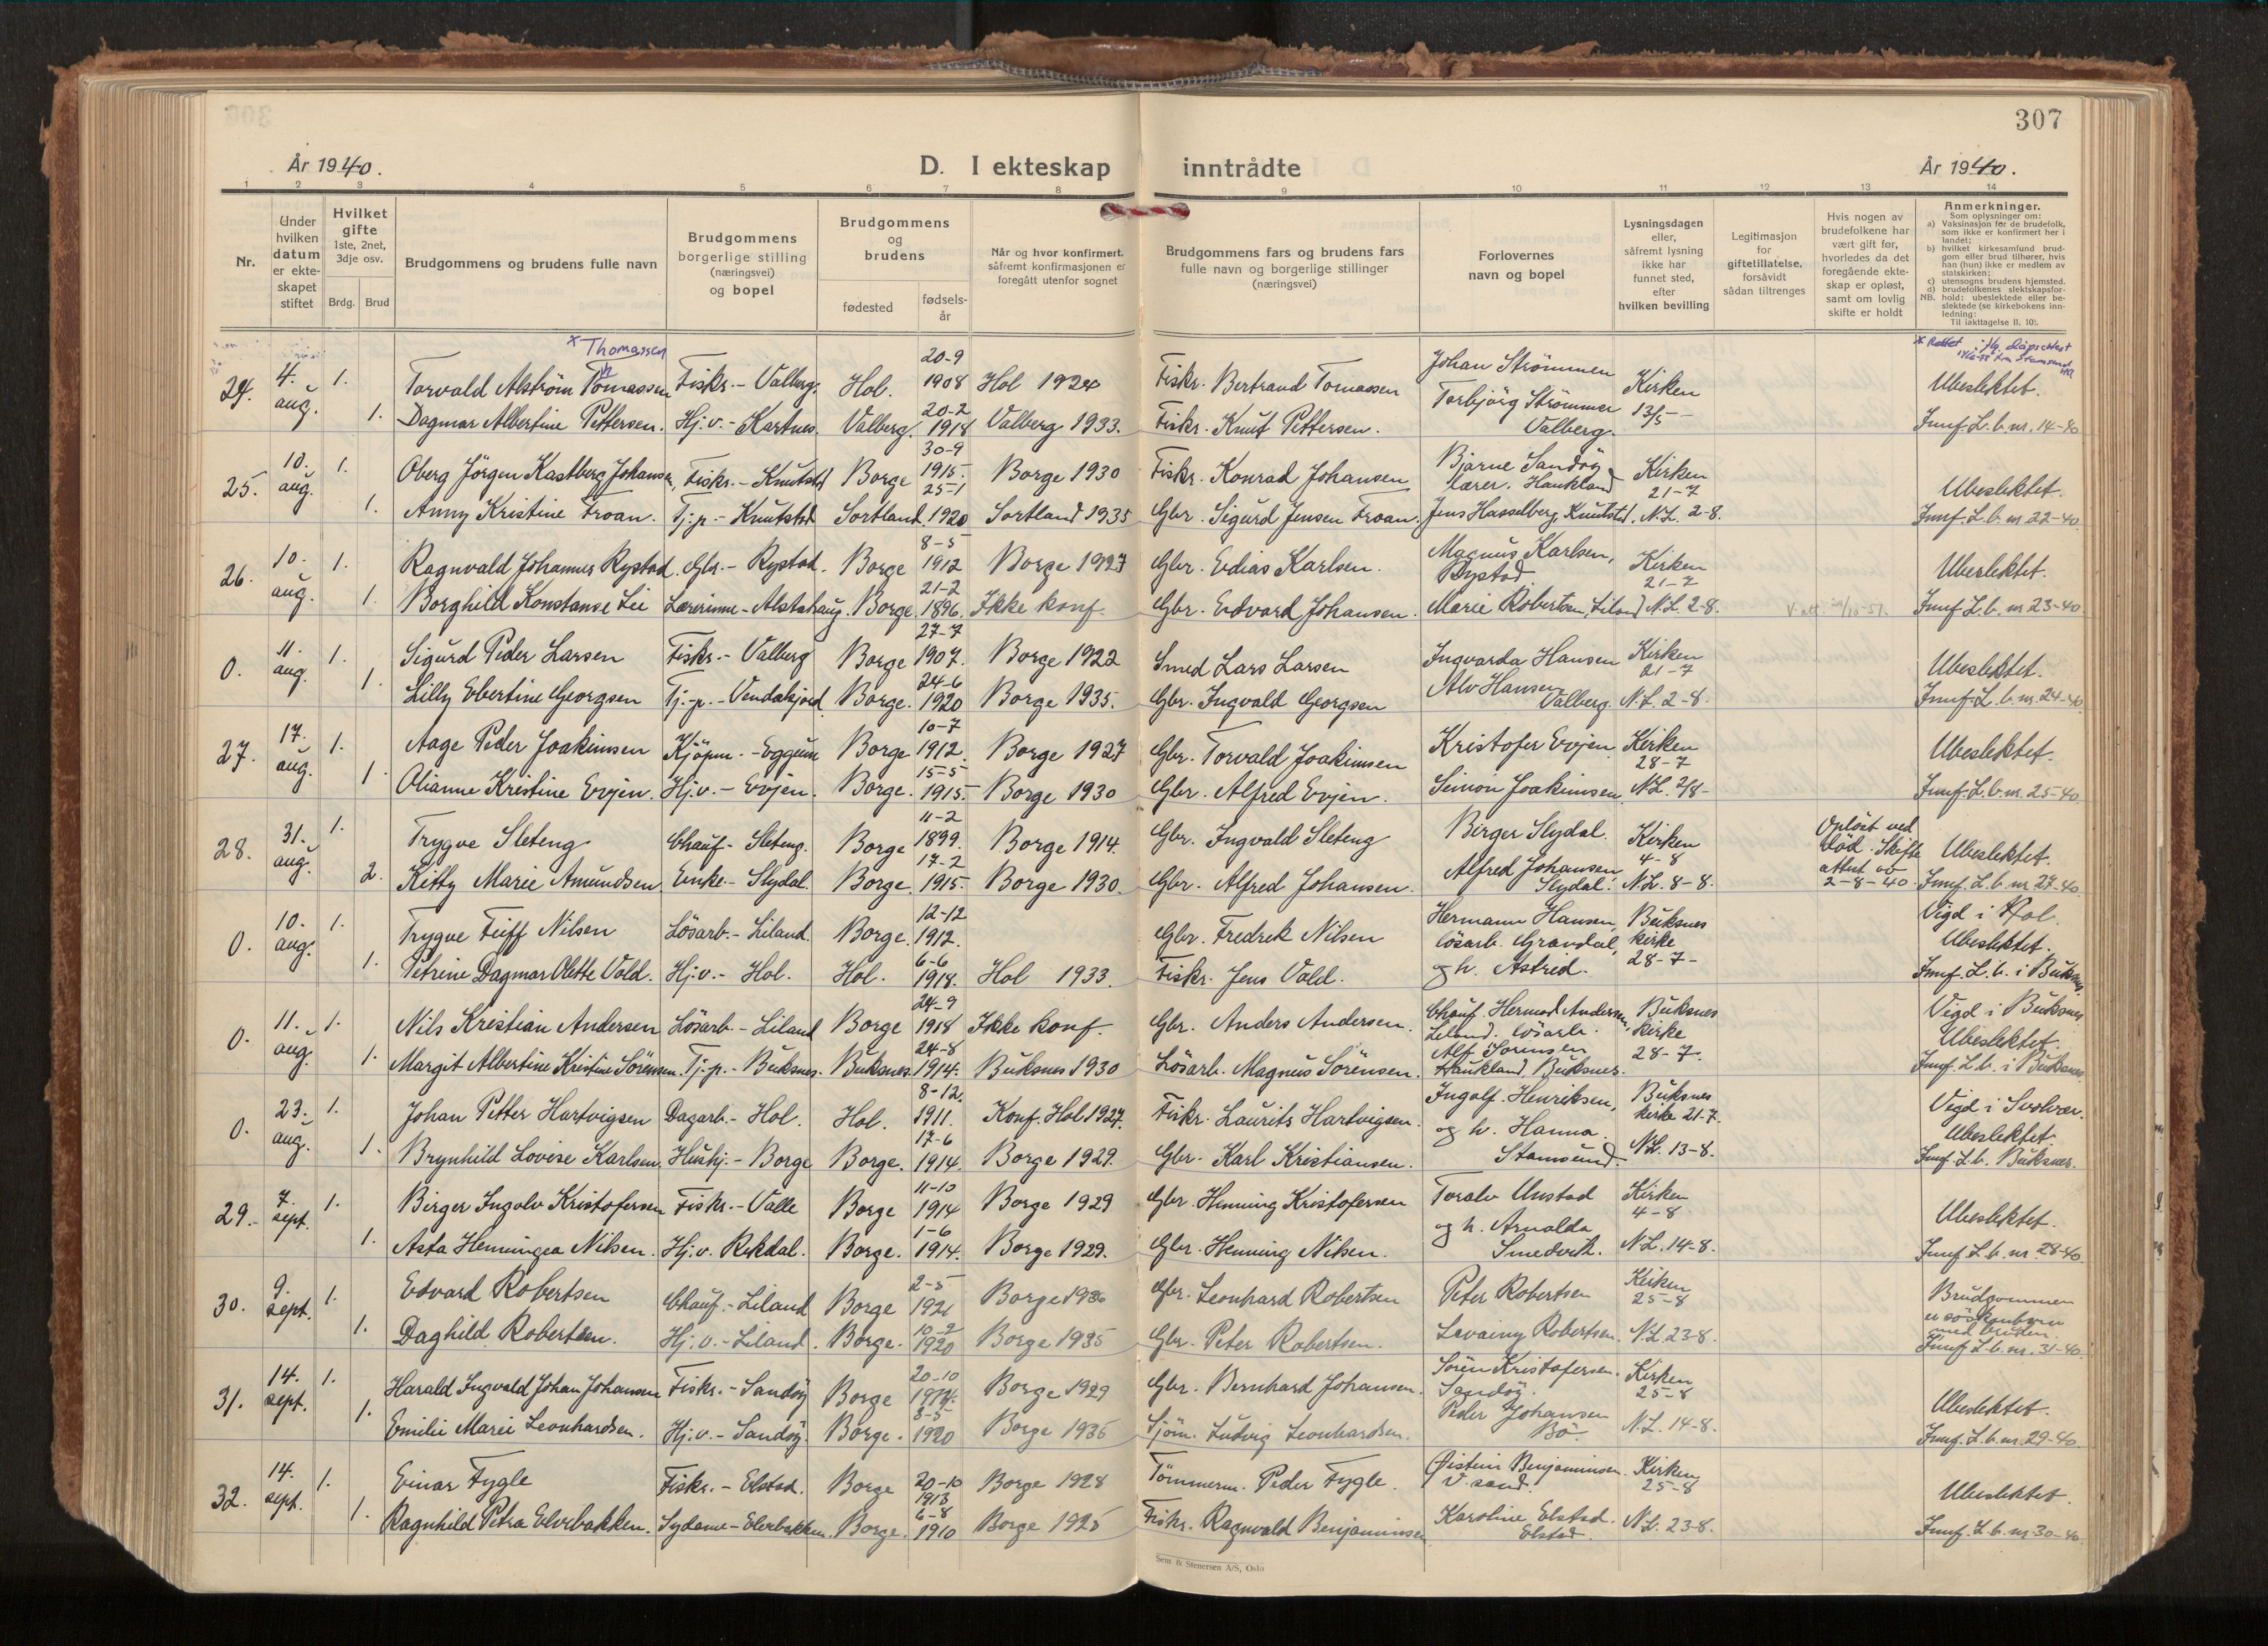 307
År 1940.
D. I ekteskap inntrådte
År 1940.
1 2 3 4 5 6 7 8 9 10 11 12 13 14
Nr.
Under hvilken datum er ekteskapet stiftet
Hvilket gifte 1ste, 2net, 3dje osv.
Brdg. Brud
Brudgommens og brudens fulle navn
Brudgommens borgerlige stilling (næringsvei) og bopel
Brudgommens og brudens
fødested
fødselsår
Når og hvor konfirmert, såfremt konfirmasjonen er foregått utenfor sognet
Brudgommens fars og brudens fars fulle navn og borgerlige stillinger (næringsvei)
Forlovernes navn og bopel
Lysningsdagen eller, såfremt lysning ikke har funnet sted, efter hvilken bevilling
Legitimasjon for giftetillatelse, forsåvidt sådan tiltrenges
Hvis nogen av brudefolkene har vært gift før, hvorledes da det foregående ekteskap er opløst, samt om lovlig skifte er holdt
Anmerkninger.
Som oplysninger om:
a) Vaksinasjon for de brudefolk, som ikke er konfirmert her i landet;
b) hvilket kirkesamfund brudgom eller brud tilhører, hvis han (hun) ikke er medlem av statskirken;
c) utensogns brudens hjemsted.
d) brudefolkenes slektskapsforhold: ubeslektede eller beslektede (se kirkebokens innledning:
NB.
Til iakttagelse II. 10).
x Thomassen
24. 4. aug. 1. Torvald Alström Tomassen Fiskr. - Valberg. Hol. 20-9 1908 Hol 1924 Fiskr. Bertrand Tomassen Johan Strömmen Kirken Ubeslektet.
1. Dagmar Albertine Pettersen. Hj.v. - Kartnes. Valberg. 20-2 1918 Valberg 1933. Fiskr. Knut Pettersen. Torbjörg Strömmen Valberg. 13/5 - Jmnf. L.b. nr. 14-40
25. 10. aug. 1. Oberg Jörgen Kastberg Johansen, Fiskr. - Knutstd Borge 30-9 1915. Borge 1930 Fiskr. Konrad Johansen Bjarne Sandöy lærer. Haukland Kirken 21-7 Ubeslektet.
1. Anny Kristine Froan. Tj.p. - Knutstd Sortland. 25-1 1920 Sortland 1935 Gbr. Sigurd Jensen Froan. Jens Hasselberg Knutstd. N.L. 2-8. Jmnf. L.b. nr. 22-40
26. 10. aug. 1. Ragnvald Johannes Rystad. Gbr. - Rystad. Borge 8-5 1912 Borge 1927 Gbr. Edias Karlsen. Magnus Karlsen, Rystad Kirken 21-7 Ubeslektet.
1. Borghild Konstanse Lie Lærerinne - Alstahaug. Borge. 21-2 1896. Ikke konf. Gbr. Edvard Johansen. Marie Robertsen, Liland N.L. 2-8. Jmnf. L.b. nr 23-40
0. 11. aug. 1. Sigurd Peder Larsen Fiskr. - Valberg Borge 27-7 1907. Borge 1922 Smed Lars Larsen Ingvarda Hansen Kirken 21-7 Ubeslektet.
1. Lilly Ebertine Georgsen Tj.-p. - Vendalsjord Borge. 24-6 1920 Borge 1935. Gbr. Ingvald Georgsen Alv Hansen Valberg. N.L. 2-8. Jmnf. L.b. nr. 24-40
27. 17. aug. 1. Aage Peder Joakimsen Kjöpm. - Eggum Borge 10-7 1912. Borge 1927 Gbr. Torvald Joakimsen Kristofer Evjen Kirken 28-7 Ubeslektet.
1. Olianne Kristine Evjen. Hj.v. - Evjen. Borge. 15-5 1915. Borge 1930 Gbr. Alfred Evjen. Simon Joakimsen. N.L. 2/8 - Jmnf. L.b. nr. 25-40
28. 31. aug. 1. Trygve Sleteng Chauf - Sleteng. Borge 11-2 1899. Borge 1914. Gbr. Ingvald Sleteng Birger Slydal. Kirken 4-8 Oplöst ved död. Skifte attest av 2-8-40. Ubeslektet.
2. Kitty Marie Amundsen Enke. - Slydal. Borge. 17-2 1915. Borge 1930. Gbr. Alfred Johansen. Alfred Johansen Slydal. N.L. 8-8. Jmnf. L.b. nr 27-40
0. 10. aug. 1. Trygve Feiff Nilsen Lösarb. - Liland. Borge. 12-12 1912. Gbr. Fredrek Nilsen Hermann Hansen, lösarb. Gravdal, Buksnes kirke 28-7 - Vigd i Hol. Ubeslektet.
1. Petrine Dagmar Olette Vold. Hj.v. - Hol. Hol. 6-6 1918. Hol 1933. Fiskr. Jens Vold. og h. Astrid. Jmnf. L.b. i Buksnes.
0. 11. aug. 1. Nils Kristian Andersen Lösarb. - Liland Borge 24-9 1918 Ikke konf. Gbr. Anders Andersen. Chauf. Hermod Andersen, Liland. lösarb. Buksnes kirke 28-7. Vigd i Buksnes Ubeslektet.
1. Margit Albertine Kristine Sörensen. Tj.-p. - Buksnes. Buksnes. 24-8 1914. Buksnes 1930 Lösarb. Magnus Sörensen. Alf Sörensen Haukland, Buksnes. Jmnf. L.b. i Buksnes.
0. 23. aug. 1. Johan Petter Hartvigsen Dagarb. - Hol. Hol. 8-12. 1911. Konf. Hol 1927. Fiskr. Laurits Hartvigsen. Ingolf Henriksen, Buksnes kirke 21-7. Vigd i Svolvær. Ubeslektet.
1. Brynhild Lovise Karlsen. Hushj. - Borge Borge. 17-6 1914. Borge 1929. Gbr. Karl Kristiansen. og h. Hanna. Stamsund. N.L. 13-8. Jmnf. L.b. Buksnes.
29. 7. sept. 1. Birger Ingolv Kristofersen Fiskr. - Valle Borge 11-10 1914 Borge 1929 Gbr. Henning Kristofersen Toralv Unstad Kirken 4-8 Ubeslektet.
1. Asta Henningea Nilsen. Hj.v. Rekdal. Borge. 1-6 1914. Borge 1929. Gbr. Henning Nilsen. og h. Arnalda Smedvik. N.L. 14-8. Jmnf. L.b. nr 28-40
30. 9. sept. 1. Edvard Robertsen Chauf. - Liland Borge 2-5 1921 Borge 1936 Gbr. Leonhard Robertsen Peter Robertsen Kirken 25-8 Brudgommen er söskenbarn med bruden.
1. Daghild Robertsen. Hj.v. - Liland. Borge. 10-2 1920 Borge 1935 Gbr. Peter Robertsen. Lovainy Robertsen. N.L. 23-8. Jmnf. L.b. nr. 31-40
31. 14. sept. 1. Harald Ingvald Johan Johansen Fiskr. - Sandöy Borge 20-10 1914. Borge 1929 Gbr. Bernhard Johansen. Sören Kristofersen. Sandöy. Kirken 25-8 Ubeslektet.
1. Emilie Marie Leonhardsen. Hj.v. - Sandöy. Borge. 3-5 1920 Borge 1935 Sjöm. Ludvig Leonhardsen. Peder Johansen Bö. N.L. 14-8. Jmnf. L.b. nr. 29-40
32. 14. sept. 1. Einar Fygle Fiskr. - Elstad. Borge 20-10 1913 Borge 1928 Tömmerm. Peder Fygle. Øistein Benjaminsen. V. sand. Kirken 25-8 Ubeslektet.
1. Ragnhild Petra Elvebakken. Sydame - Elvebakken. Borge. 6-8 1910 Borge 1925 Fiskr. Ragnvald Benjaminsen Karoline Elstad. Elstad. N.L. 23-8. Jmnf. L.b. nr 30-40
Sem & Stenersen A/S, Oslo